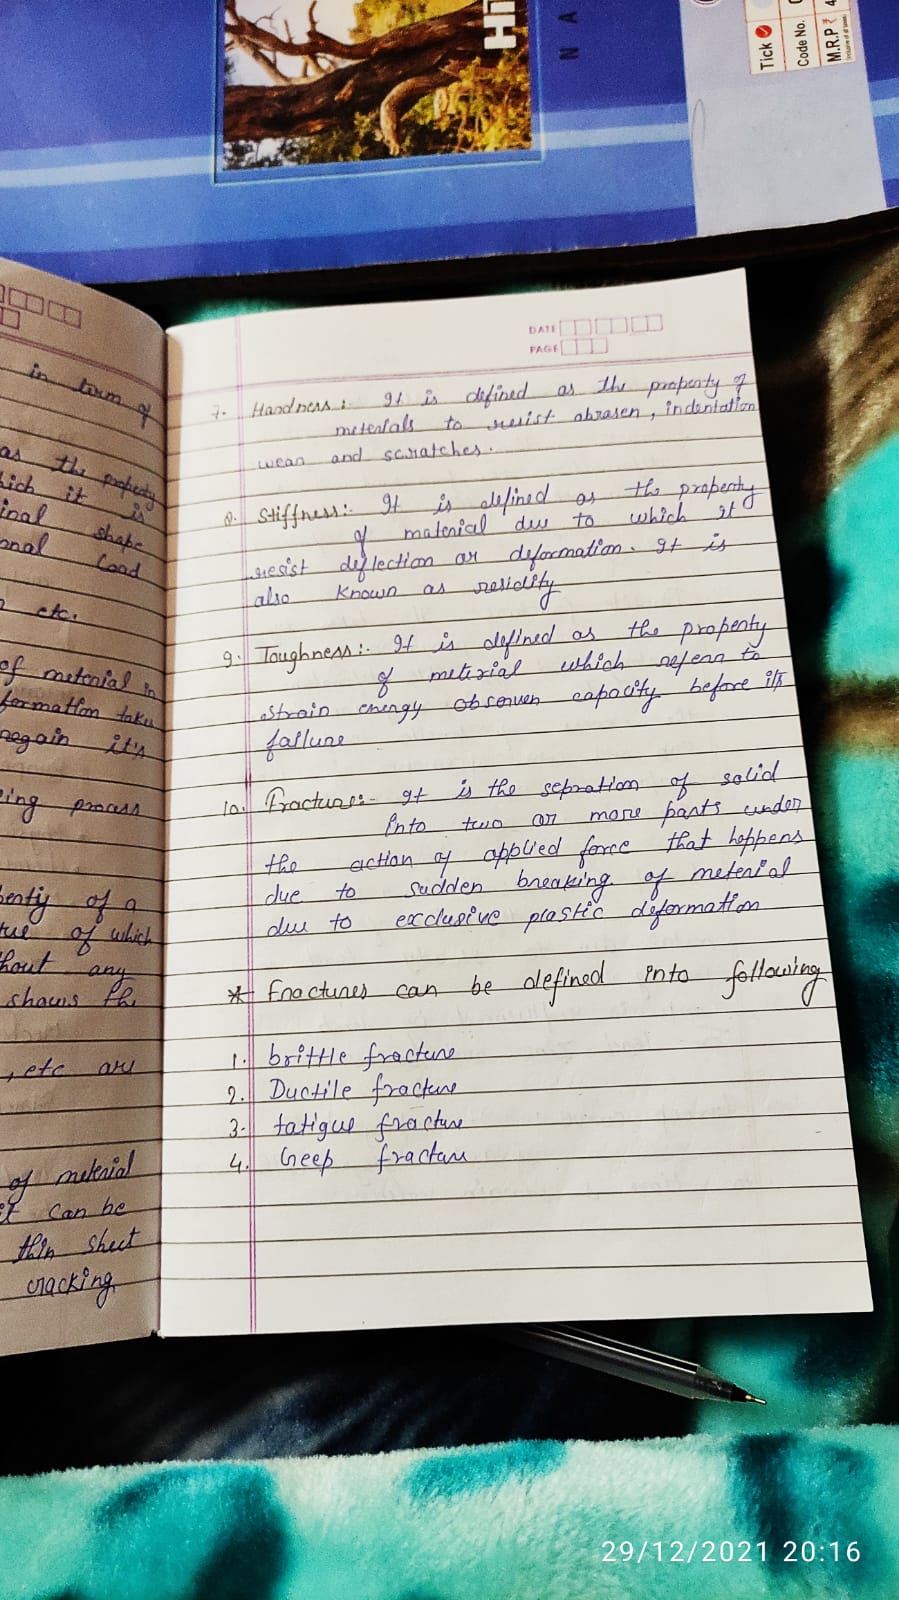 HI
N A
Tick
Code No.
M.R.P ₹ 4
in term of
as the property
which it is
inal shape
onal load
etc.
of meterial in
formation takes
regain it's
ing process
perty of a
tue of which
hout any
shows the
, etc are
of meterial
it can be
thin sheet
cracking
DATE
PAGE
7. Hardness:- It is defined as the property of
meterials to resist abrasen, indentation
wear and scratches.
8. Stiffness:- It is defined as the property
of material due to which it
resist deflection or deformation. It is
also known as residity
9. Toughness:- It is defined as the property
of meterial which refers to
strain energy observer capacity before its
failure
10. Fracture:- It is the sepration of solid
into two or more parts under
the action of applied force that happens
due to sudden breaking of meterial
due to exclusive plastic deformation
* Fractures can be defined into following
1. brittle fracture
2. Ductile fracture
3. fatigue fracture
4. Creep fracture
29/12/2021 20:16